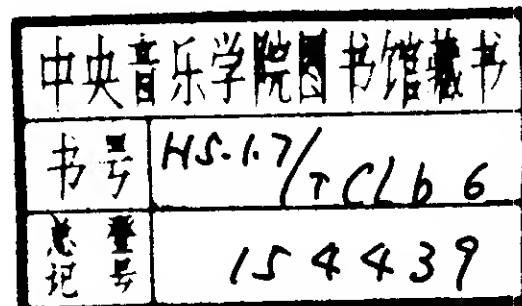 中央音乐学院图书馆藏书
书号 HS.1.7/TCLb6
总登记号 154439